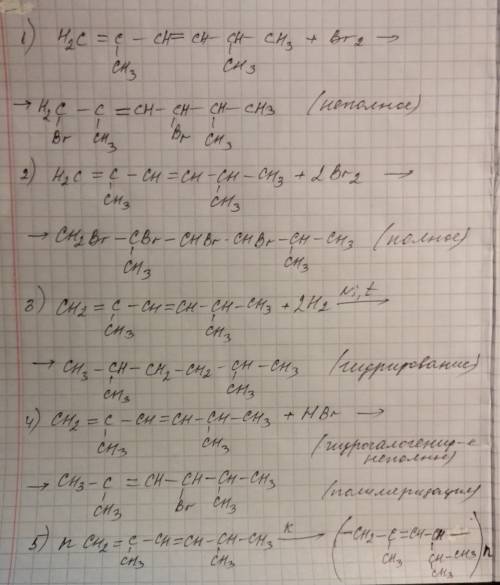 1) H2C = C - CH = CH - CH - CH3 + Br2 →
CH3 CH3
→ H2C - C = CH - CH - CH - CH3 (неполное)
Br CH3 Br CH3
2) H2C = C - CH = CH - CH - CH3 + 2Br2 →
CH3 CH3
→ CH2Br - CBr - CHBr - CHBr - CH - CH3 (полное)
CH3 CH3
3) CH2 = C - CH = CH - CH - CH3 + 2H2 Ni, t →
CH3 CH3
→ CH3 - CH - CH2 - CH2 - CH - CH3 (гидрирование)
CH3 CH3
4) CH2 = C - CH = CH - CH - CH3 + HBr →
CH3 CH3 (гидрогалогенир-е
неполное)
→ CH3 - C = CH - CH - CH - CH3 (полимеризация)
CH3 Br CH3
5) n CH2 = C - CH = CH - CH - CH3 K → (- CH2 - C = CH - CH -)n
CH3 CH3 CH3 CH - CH3
CH3